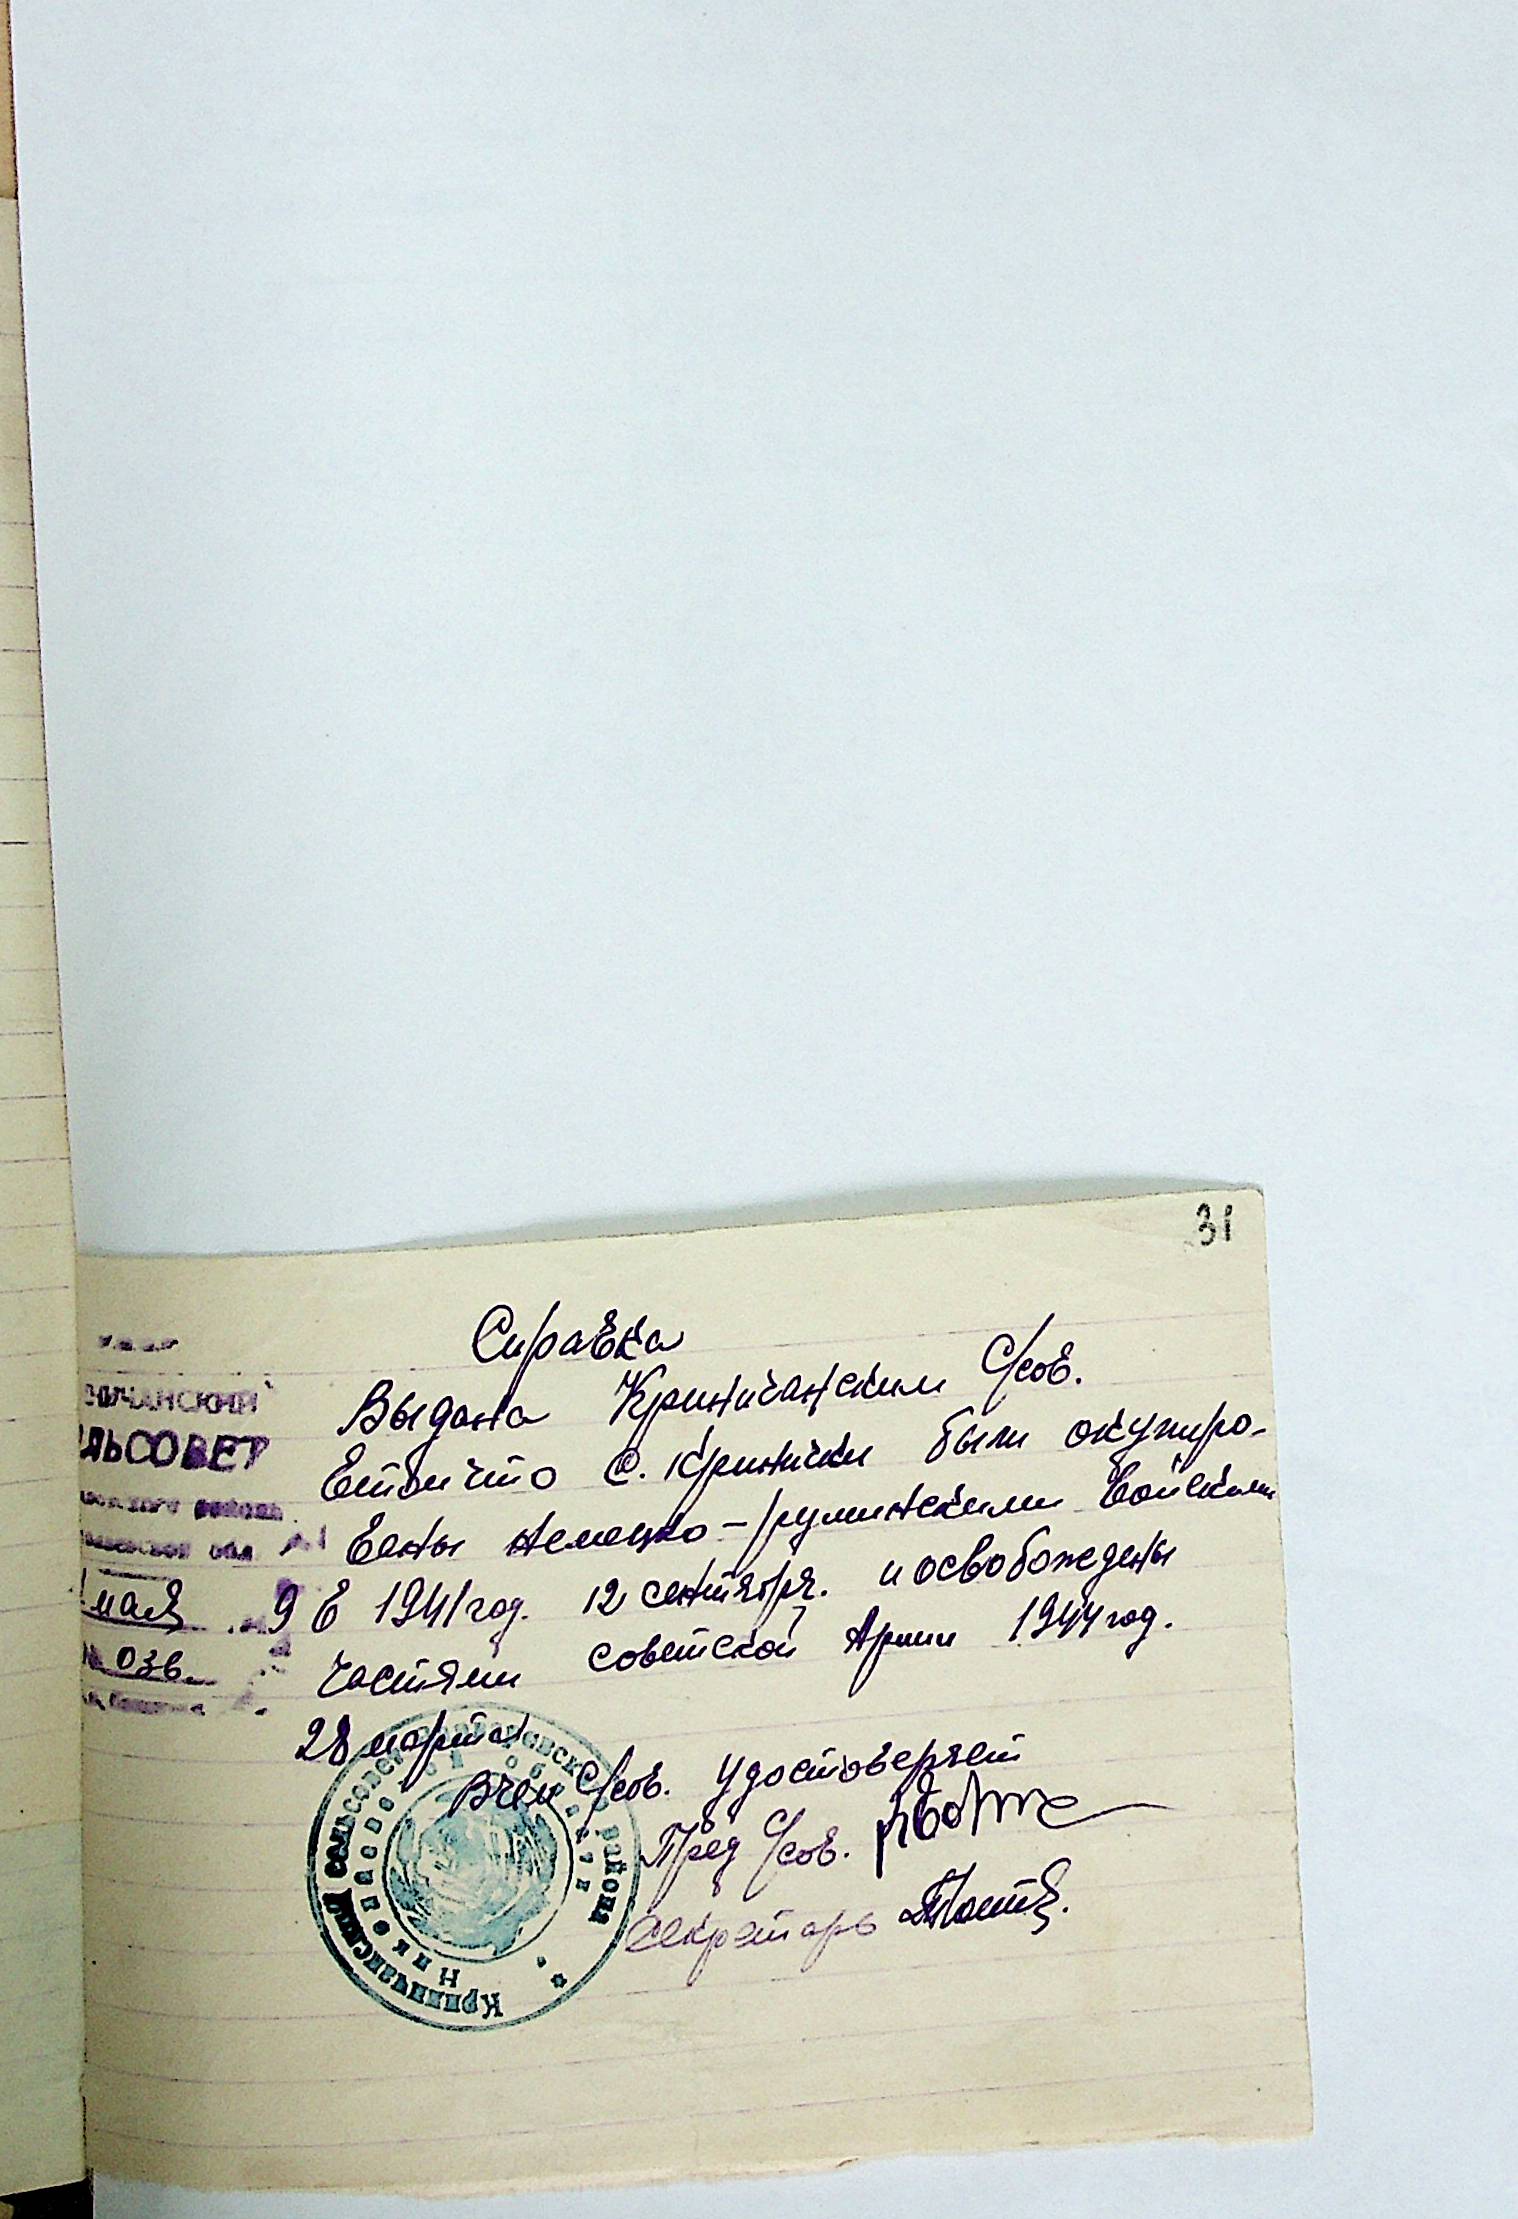 31
Справка
Выдана Криничанским С/сов.
в том что с. Кринички были окупиро-
ваны немецко-румынскими войсками
в 1941 год. 12 сентября. и освобождены
частями советской Армии 1944 год.
28 марта
В чем С/сов. удостоверяет
Пред С/сов.
секретарь
ЧАНСКИЙ
ЛЬСОВЕТ
мая 9
036.
Криничанский сельсовет района
Николаевской области